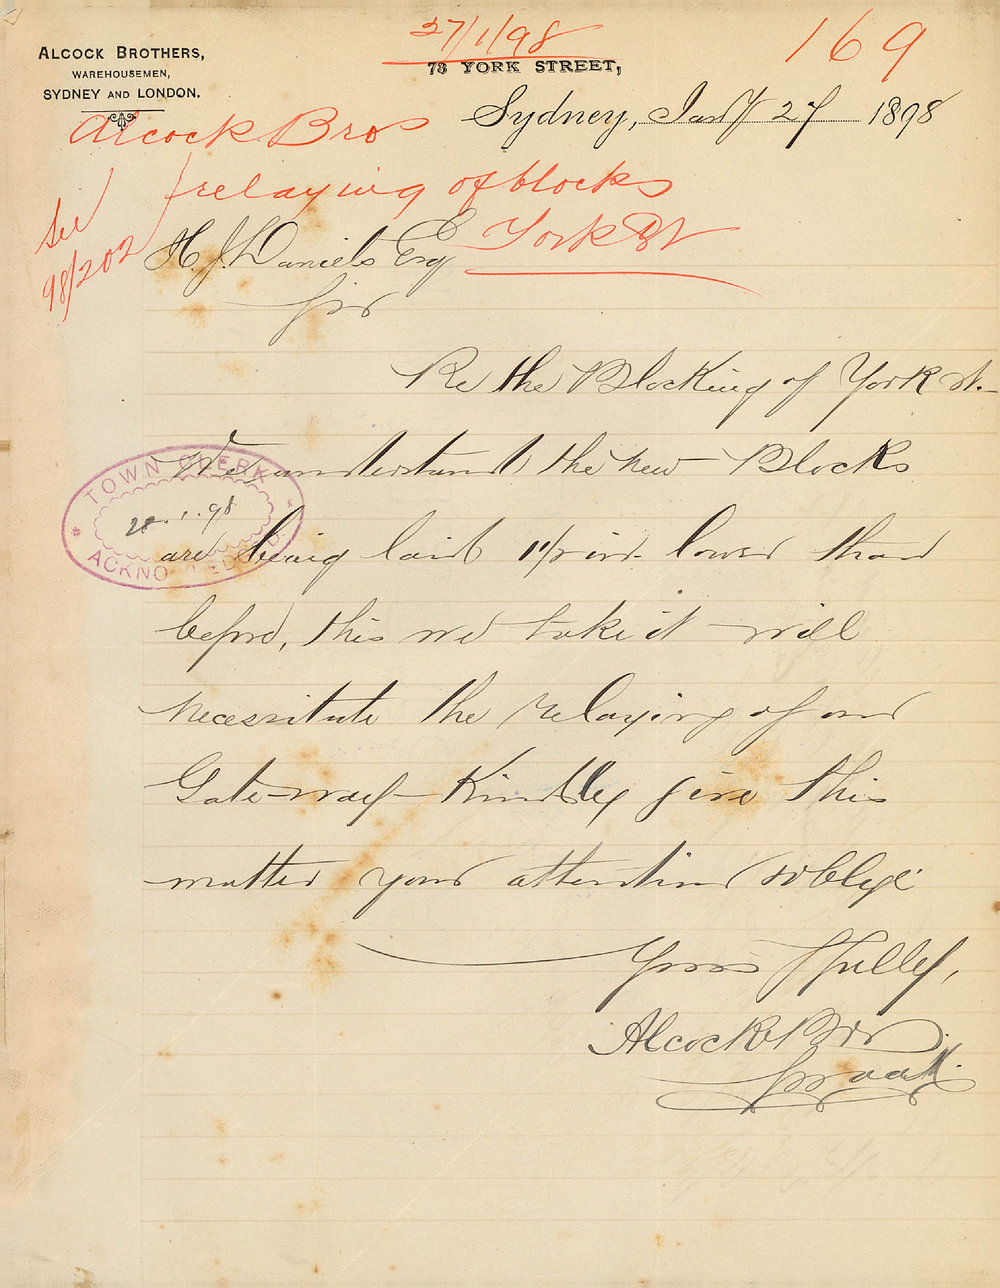 27/1/98
169
ALCOCK BROTHERS,
WAREHOUSEMEN,
SYDNEY AND LONDON.
73 YORK STREET,
Sydney, Jany 27 1898
Alcock Bros
relaying of blocks
York St
See
98/202
H. J. Daniels Esq
Sir
Re the Blocking of York st.
We understand the new Blocks
are being laid lower than
before, this we take it will
necessitate the relaying of our
Gate-way - Kindly give this
matter your attention & oblige
Yours Tfully,
Alcock Bros
TOWN CLERK
28.1.98
ACKNOWLEDGED